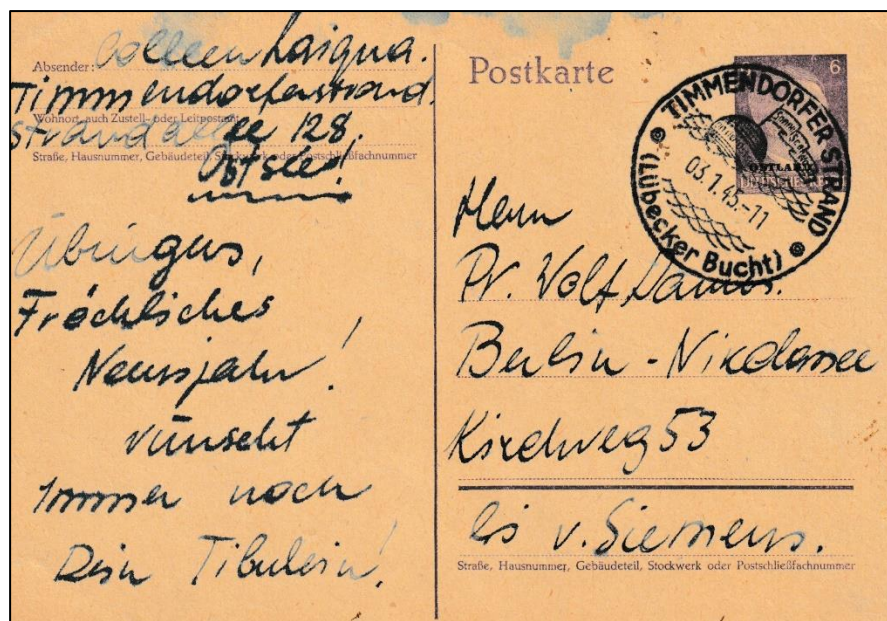 Absender:
Timmendorferstrand.
Wohnort, auch Zustell- oder Leitpostamt
Strandallee 128.
Straße, Hausnummer, Gebäudeteil, Stockwerk oder Postschließfachnummer
Ostsee!
Übrigens,
Fröchliches
Neusjahr!
vünscht
Immer noch
Dein Tibulein!
Postkarte
6
TIMMENDORFER STRAND
03.1.45.-11
(Lübecker Bucht)
OSTLAND
Herrn
Wolf
Berlin - Nikolassee
Kirchweg 53
bis v. Siemens.
Straße, Hausnummer, Gebäudeteil, Stockwerk oder Postschließfachnummer